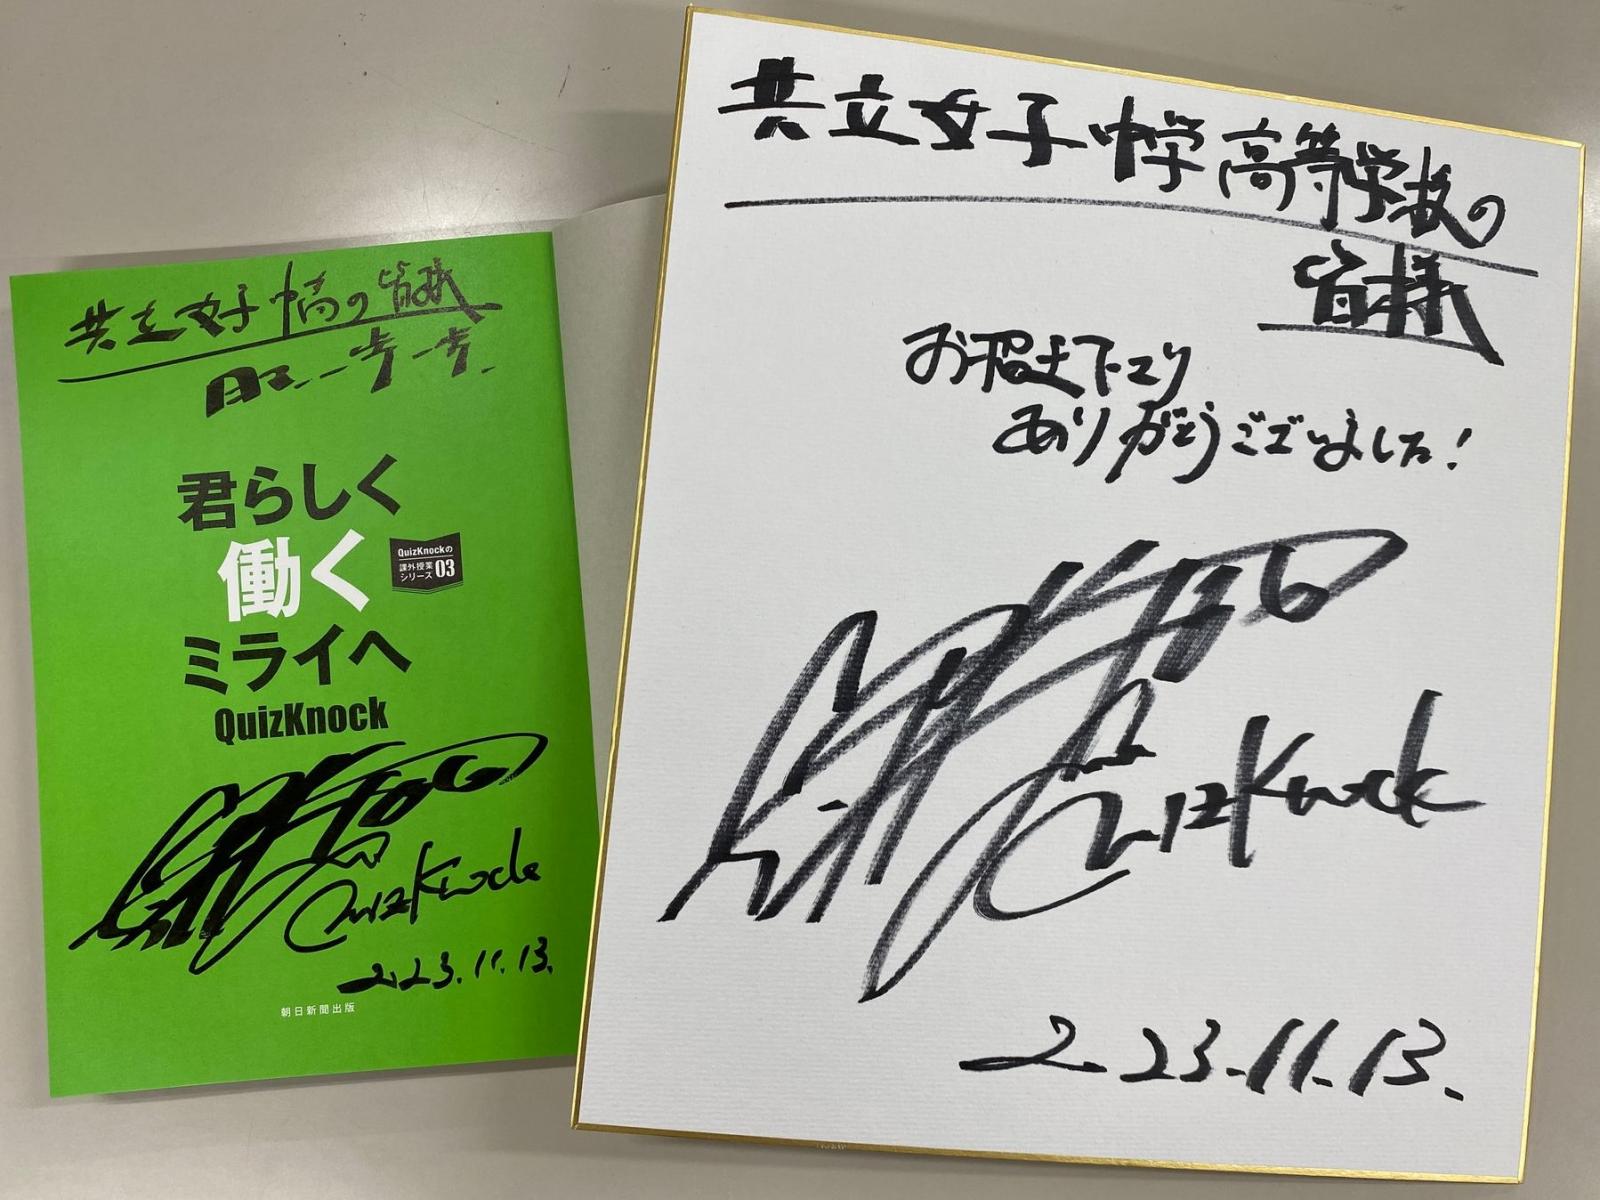 共立女子中高の皆様
日々一歩一歩.
君らしく
働く
ミライへ
QuizKnockの
課外授業
シリーズ 03
QuizKnock
QuizKnock
2023.11.13.
朝日新聞出版
共立女子中学高等学校の
皆様
お招き下さり
ありがとうございました!
QuizKnock
2023.11.13.